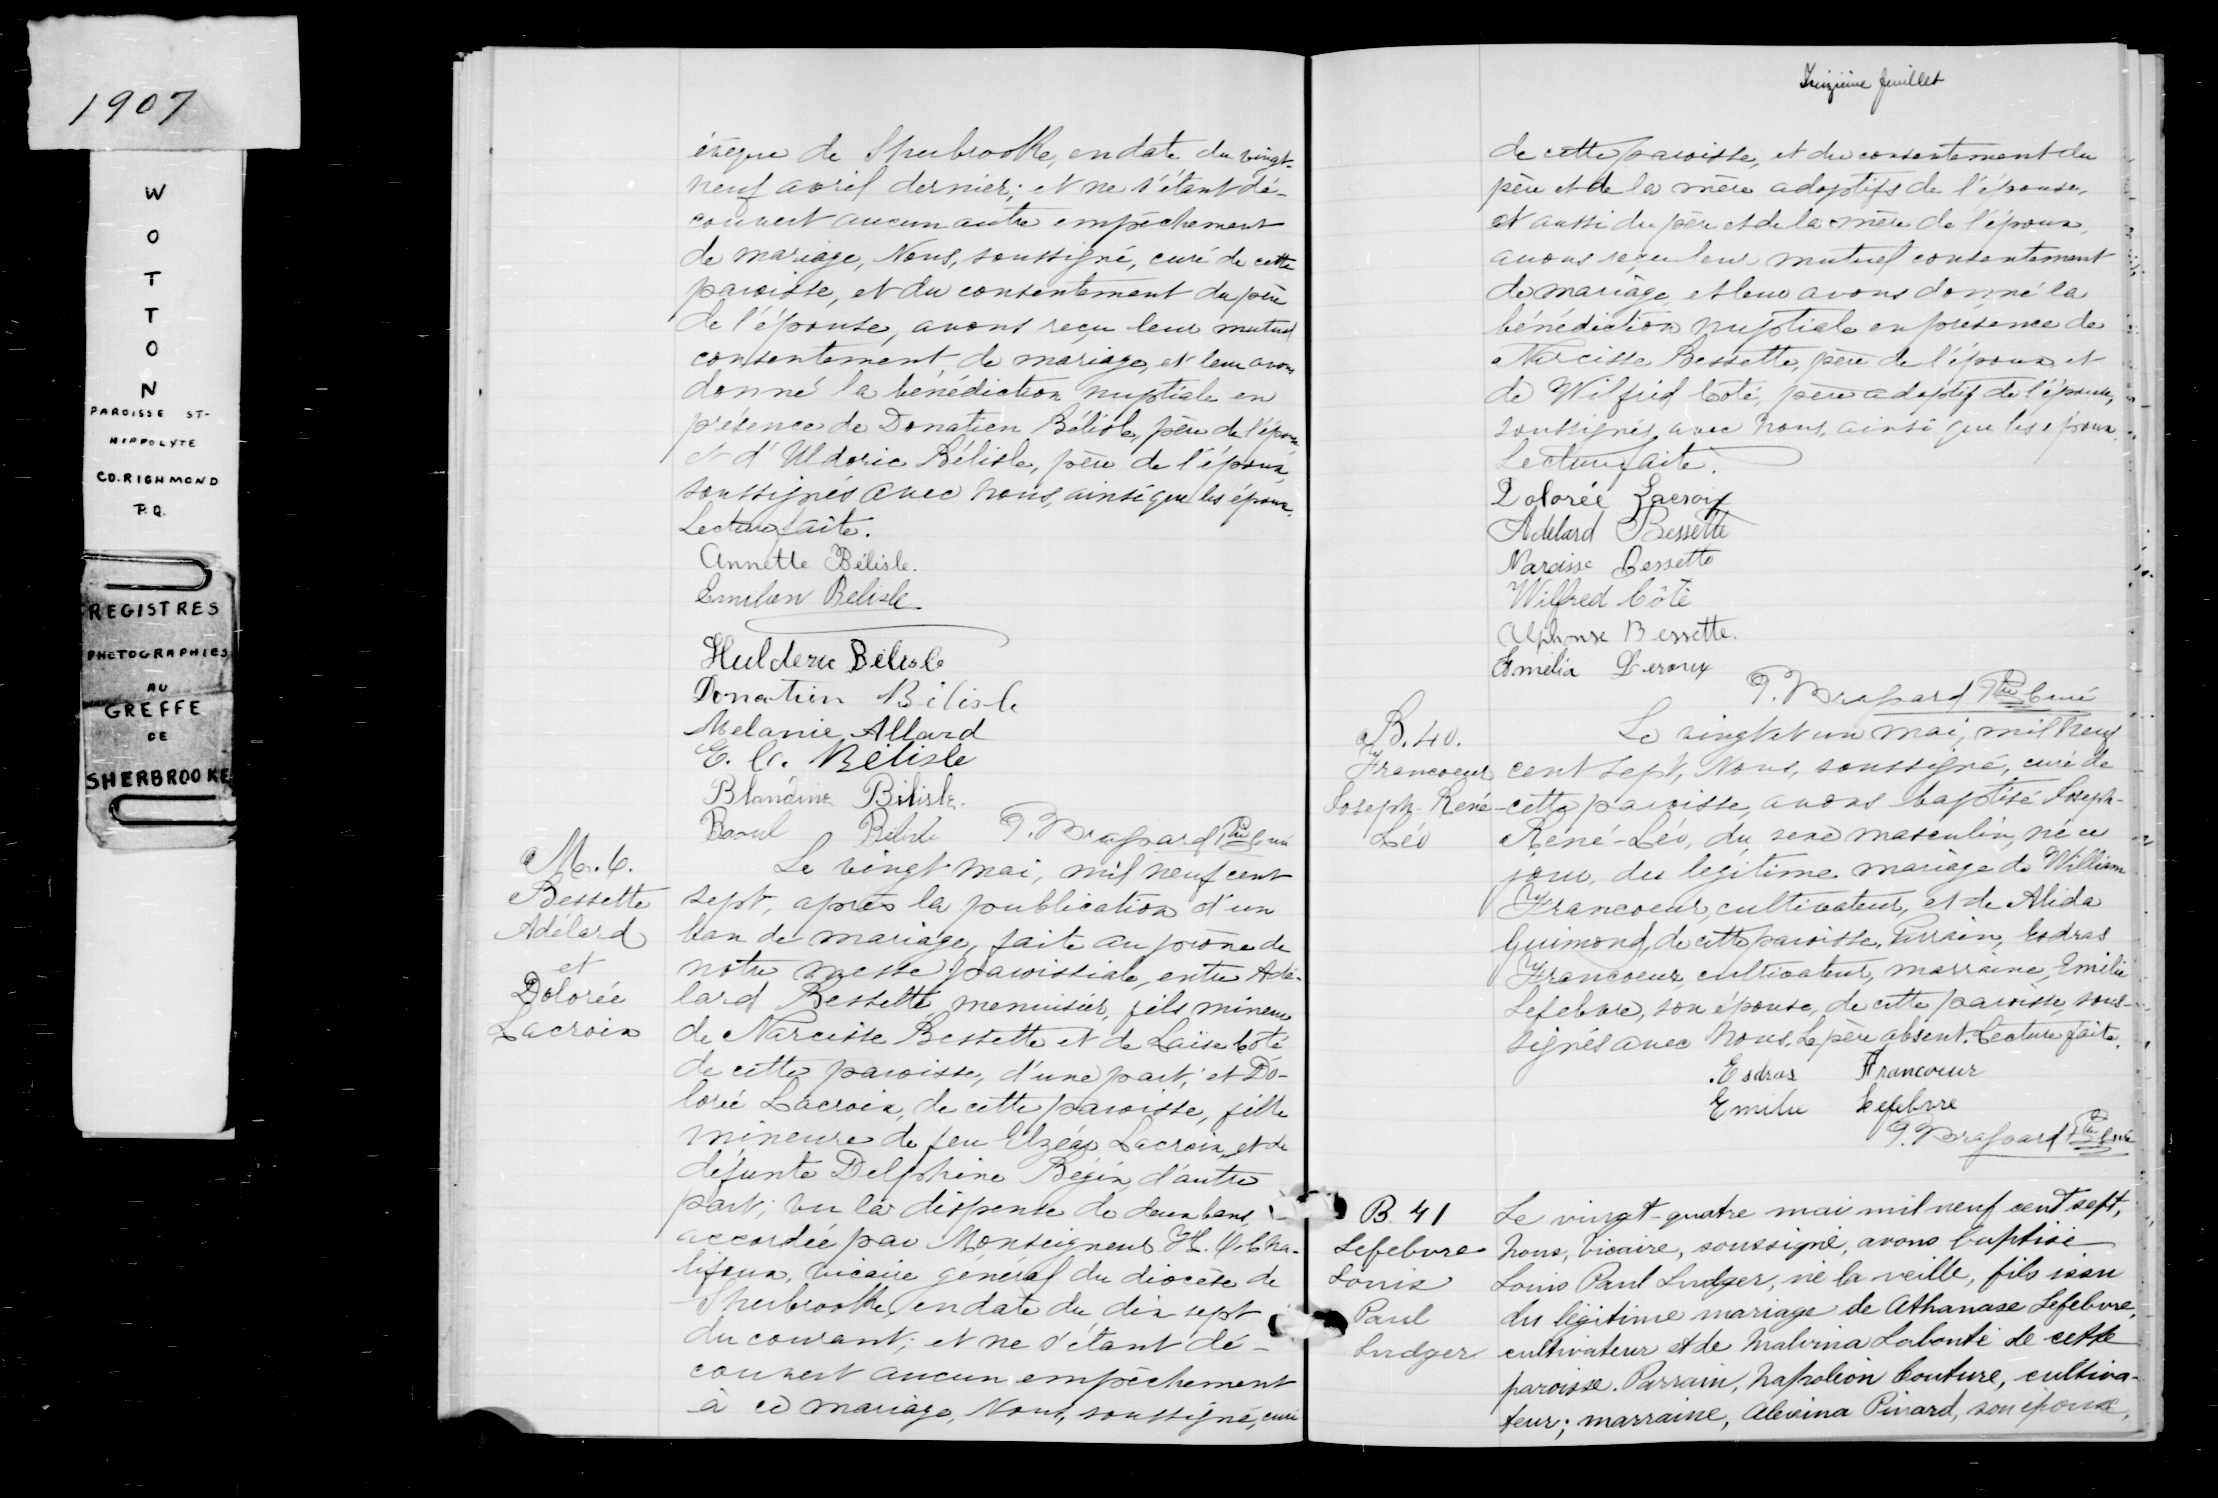 1907
WOTTON
PAROISSE ST-
HIPPOLYTE
CO. RICHMOND
P.Q.
REGISTRES
PHOTOGRAPHIES
AU
GREFFE
DE
SHERBROOKE
évêque de Sherbrooke, en date du vingt-
neuf avril dernier; et ne s'étant dé-
couvert aucun autre empêchement
de mariage, Nous, soussigné, curé de cette
paroisse, et du consentement du père
de l'épouse, avons reçu leur mutuel
consentement de mariage, et leur avons
donné la bénédiction nuptiale en
présence de Donatien Bélisle, père de l'épouse
et d'Uldoric Bélisle, père de l'époux,
soussignés avec nous, ainsi que les époux.
Lecture faite.
Annette Bélisle.
Emilien Belisle
Hulderic Bélisle
Donatien Bélisle
Melanie Allard
E. C. Bélisle
Blandine Bélisle.
Raoul Bélisle P. Brassard Ptre Curé
M. 6.
Bessette
Adélard
et
Dolorée
Lacroix
Le vingt mai, mil neuf cent
sept, après la publication d'un
ban de mariage, faite au prône de
notre messe paroissiale, entre Adé-
lard Bessette, menuisier, fils mineur
de Narcisse Bessette et de Laïse Côté
de cette paroisse, d'une part; et Do-
lorée Lacroix, de cette paroisse, fille
mineure de feu Elzéar Lacroix, et de
défunte Delphine Bégin, d'autre
part; vu la dispense de deux bans,
accordée par Monseigneur H. O. Cha-
lifoux, vicaire général du diocèse de
Sherbrooke, en date du dix sept
du courant; et ne s'étant dé-
couvert aucun empêchement
à ce mariage, Nous, soussigné, curé
Treizième feuillet
de cette paroisse, et du consentement du
père et de la mère adoptifs de l'épouse,
et aussi du père et de la mère de l'époux,
avons reçu leur mutuel consentement
de mariage et leur avons donné la
bénédiction nuptiale en présence de
Narcisse Bessette, père de l'époux et
de Wilfrid Côté, père adoptif de l'épouse,
soussignés avec nous, ainsi que les époux.
Lecture faite.
Dolorée Lacroix
Adélard Bessette
Narcisse Bessette
Wilfred Côté
Alphonse Bessette.
Emélia Leroux
P. Brassard Ptre Curé
B. 40.
Francoeur
Joseph-René-
Léo
Le vingt et un mai, mil neuf
cent sept, Nous, soussigné, curé de
cette paroisse, avons baptisé Joseph-
René-Léo, du sexe masculin, né ce
jour, du légitime mariage de William
Francoeur, cultivateur, et de Alida
Guimond, de cette paroisse. Parrain, Esdras
Francoeur, cultivateur, marraine, Emilie
Lefebvre, son épouse, de cette paroisse, sous-
signés avec nous. Le père absent. Lecture faite.
Esdras Francoeur
Emilie Lefebvre
P. Brassard Ptre Curé
B. 41
Lefebvre
Louis
Paul
Ludger
Le vingt-quatre mai mil neuf cent sept,
nous, vicaire, soussigné, avons baptisé
Louis Paul Ludger, né la veille, fils issu
du légitime mariage de Athanase Lefebvre,
cultivateur et de Malvina Labonté de cette
paroisse. Parrain, Napoléon Couture, cultiva-
teur; marraine, Alexina Pinard, son épouse,